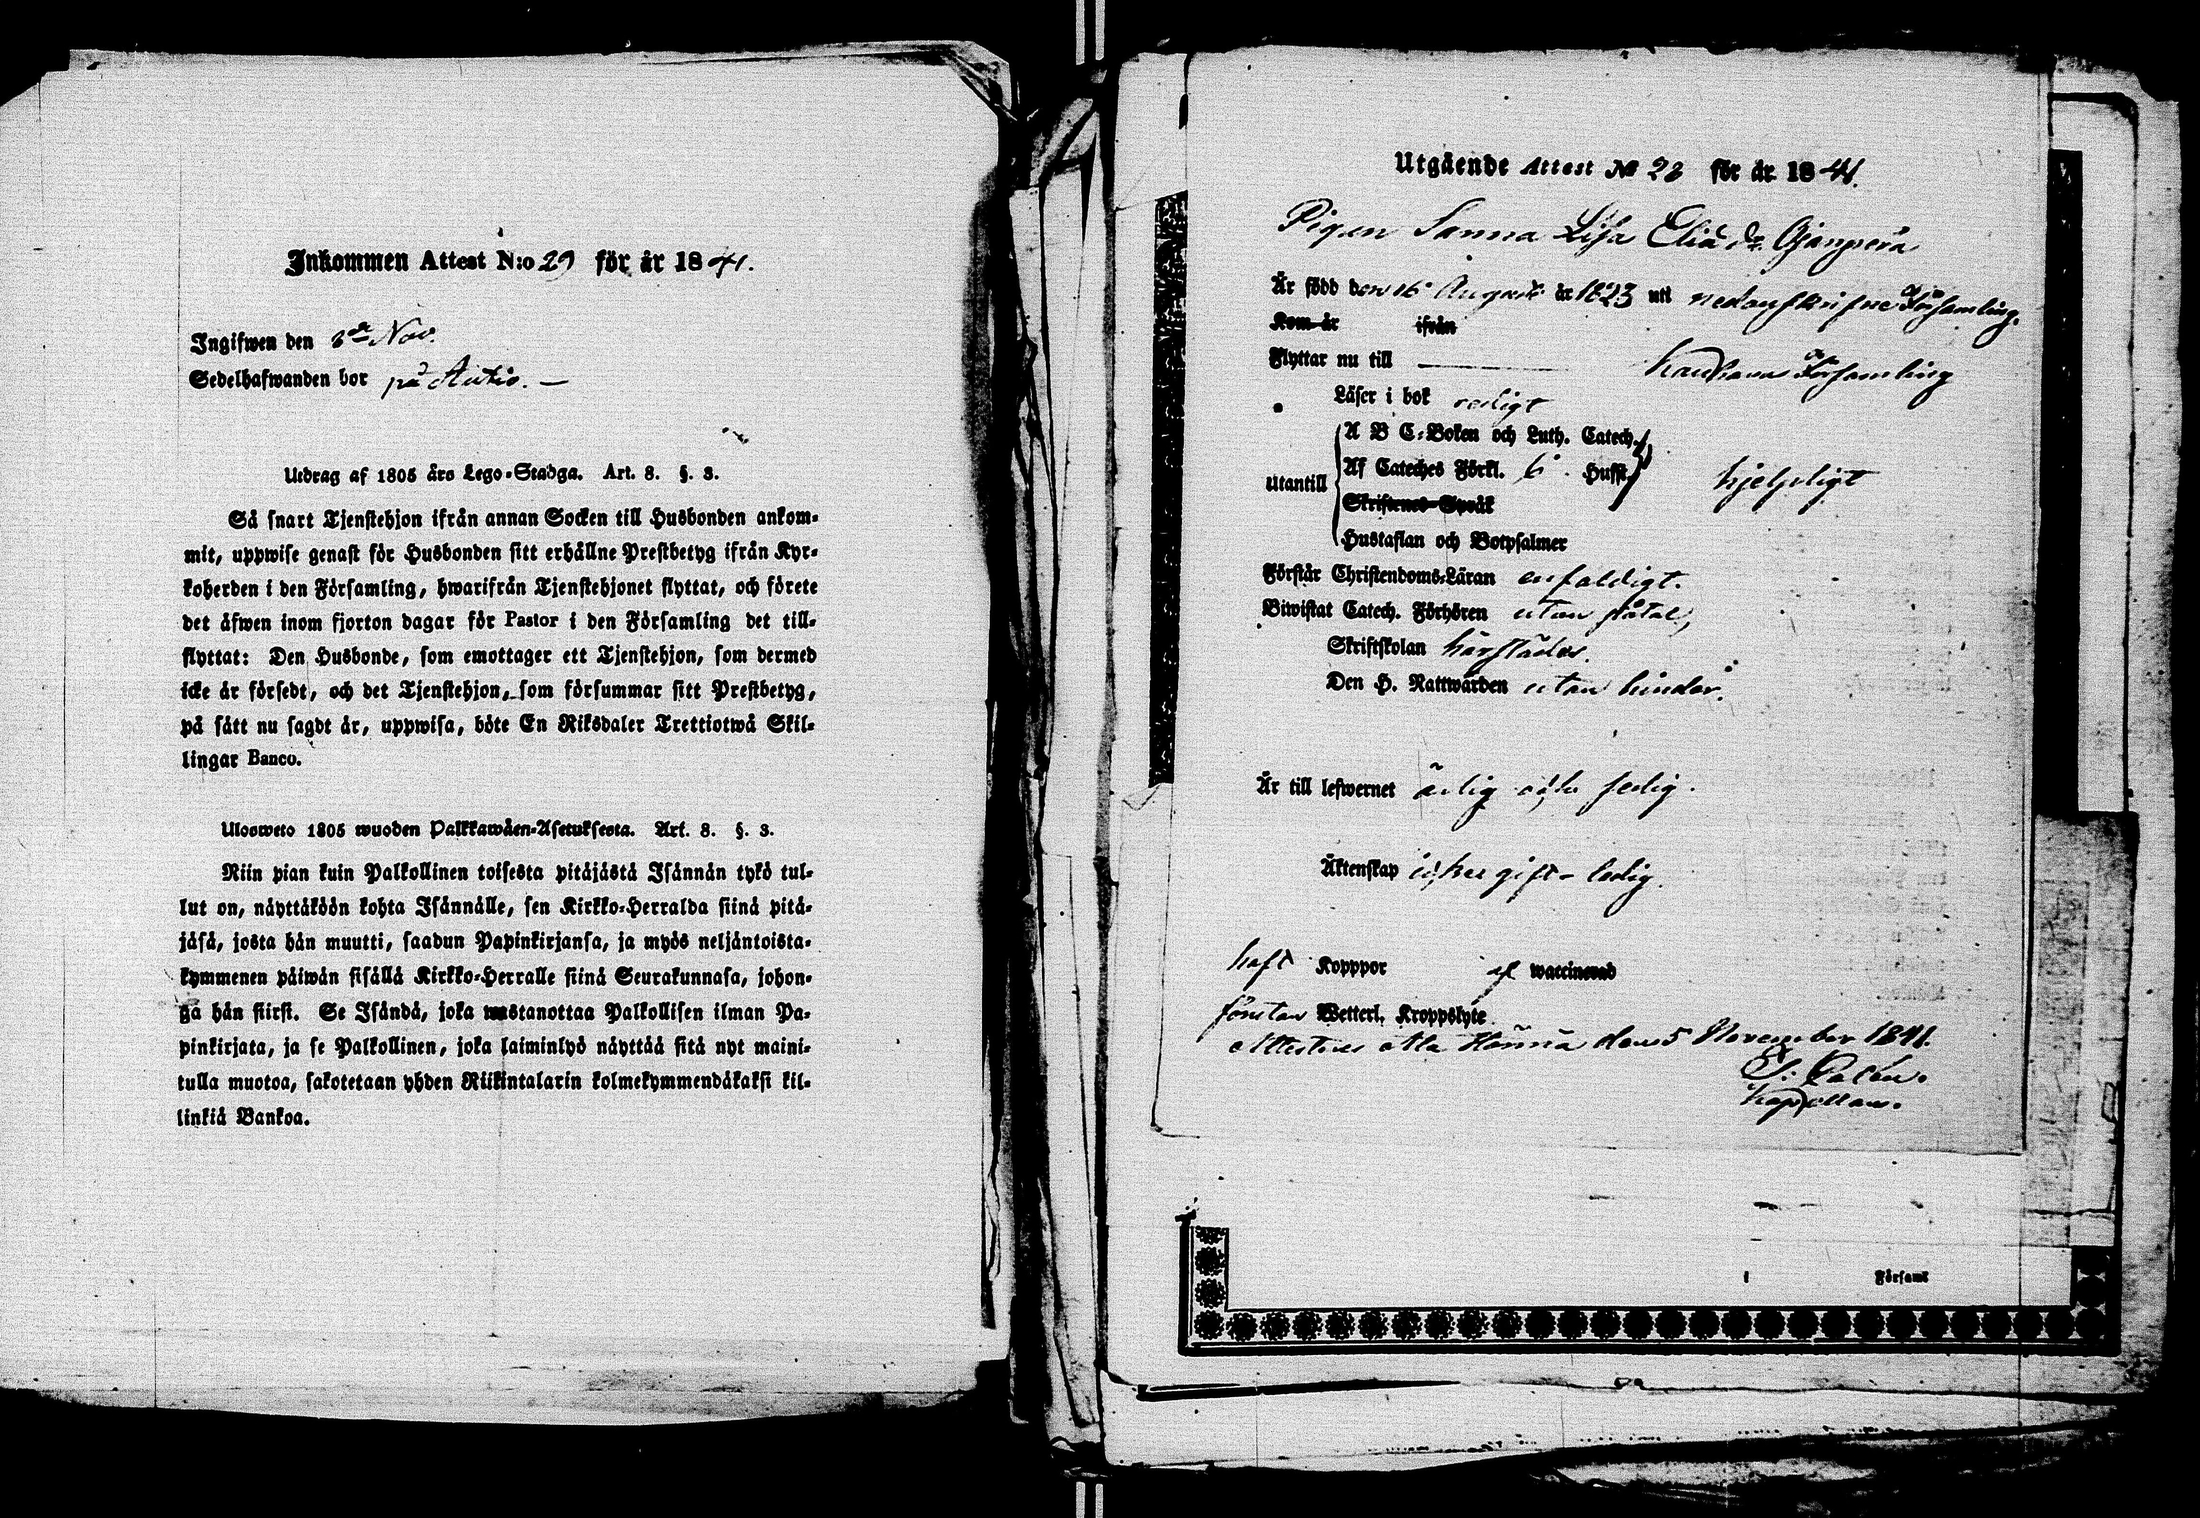 Inkommen Attest N:o 29 för år 1841.
Ingifwen den 8de Nov.
Sedelhafwanden bor på Autio. —
Utdrag af 1805 års Lego-Stadga. Art. 8. §. 3.
Så snart Tjenstehjon ifrån annan Socken till Husbonden ankom-
mit, uppwise genast för Husbonden sitt erhållne Prestbetyg ifrån Kyr-
koherden i den Församling, hwarifrån Tjenstehjonet flyttat, och förete
det äfwen inom fjorton dagar för Pastor i den Församling det till-
flyttat: Den Husbonde, som emottager ett Tjenstehjon, som dermed
icke är försedt, och det Tjenstehjon, som försummar sitt Prestbetyg,
på sätt nu sagdt är, uppwisa, böte En Riksdaler Trettiotwå Skil-
lingar Banco.
Ulosweto 1805 wuoden Palkkawäen-Asetuksesta. Art. 8. §. 3.
Niin pian kuin Palkollinen toisesta pitäjästä Isännän tykö tul-
lut on, näyttäköön kohta Isännälle, sen Kirkko-Herralda siinä pitä-
jäsä, josta hän muutti, saadun Papinkirjansa, ja myös neljäntoista-
kymmenen päiwän sisällä Kirkko-Herralle siinä Seurakunnasa, johon-
ga hän siirsi. Se Isändä, joka wastanottaa Palkollisen ilman Pa-
pinkirjata, ja se Palkollinen, joka laiminlyö näyttää sitä nyt maini-
tulla muotoa, sakotetaan yhden Riikintalarin kolmekymmendäkaksi kil-
linkiä Bankoa.
Utgående Attest No 28 för år 1841.
Pigan Sanna Lisa Eliä dr
Är född den 16 Augusti år 1823 uti nedanskrifne Församling.
Kom år ifrån
Flyttar nu till Kauhava Församling
Läser i bok redigt
Utantill
A B C-Boken och Luth. Catech.
Af Cateches Förkl. 6 Hufst.
hjelpligt
Skriftenes Språk
Hustaflan och Botpsalmer
Förstår Christendoms-Läran enfaldigt.
Biwistat Catech. Förhören utan påtal,
Skriftskolan härstädes.
Den H. Nattwarden utan hinder.
Är till lefwernet ärlig och sedig.
Äktenskap icke gift - ledig.
haft Kopppor ej waccinerad
förutan Wetterl. Kroppslyte
Attesteres Ala Härmä den 5 November 1841.
Kapellan.
i Församl